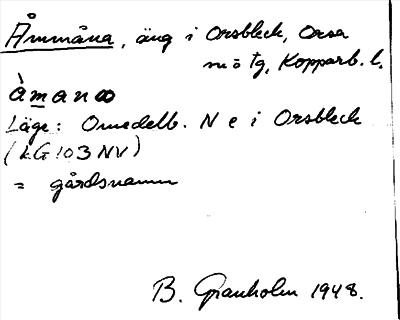 Åmmåna, äng i Orsbleck, Orsa
sn o tg, Kopparb. l.
àmanω
Läge: Omedelb. N e i Orsbleck
(LG 103 NV)
= gårdsnamn
B. Granholm 1948.